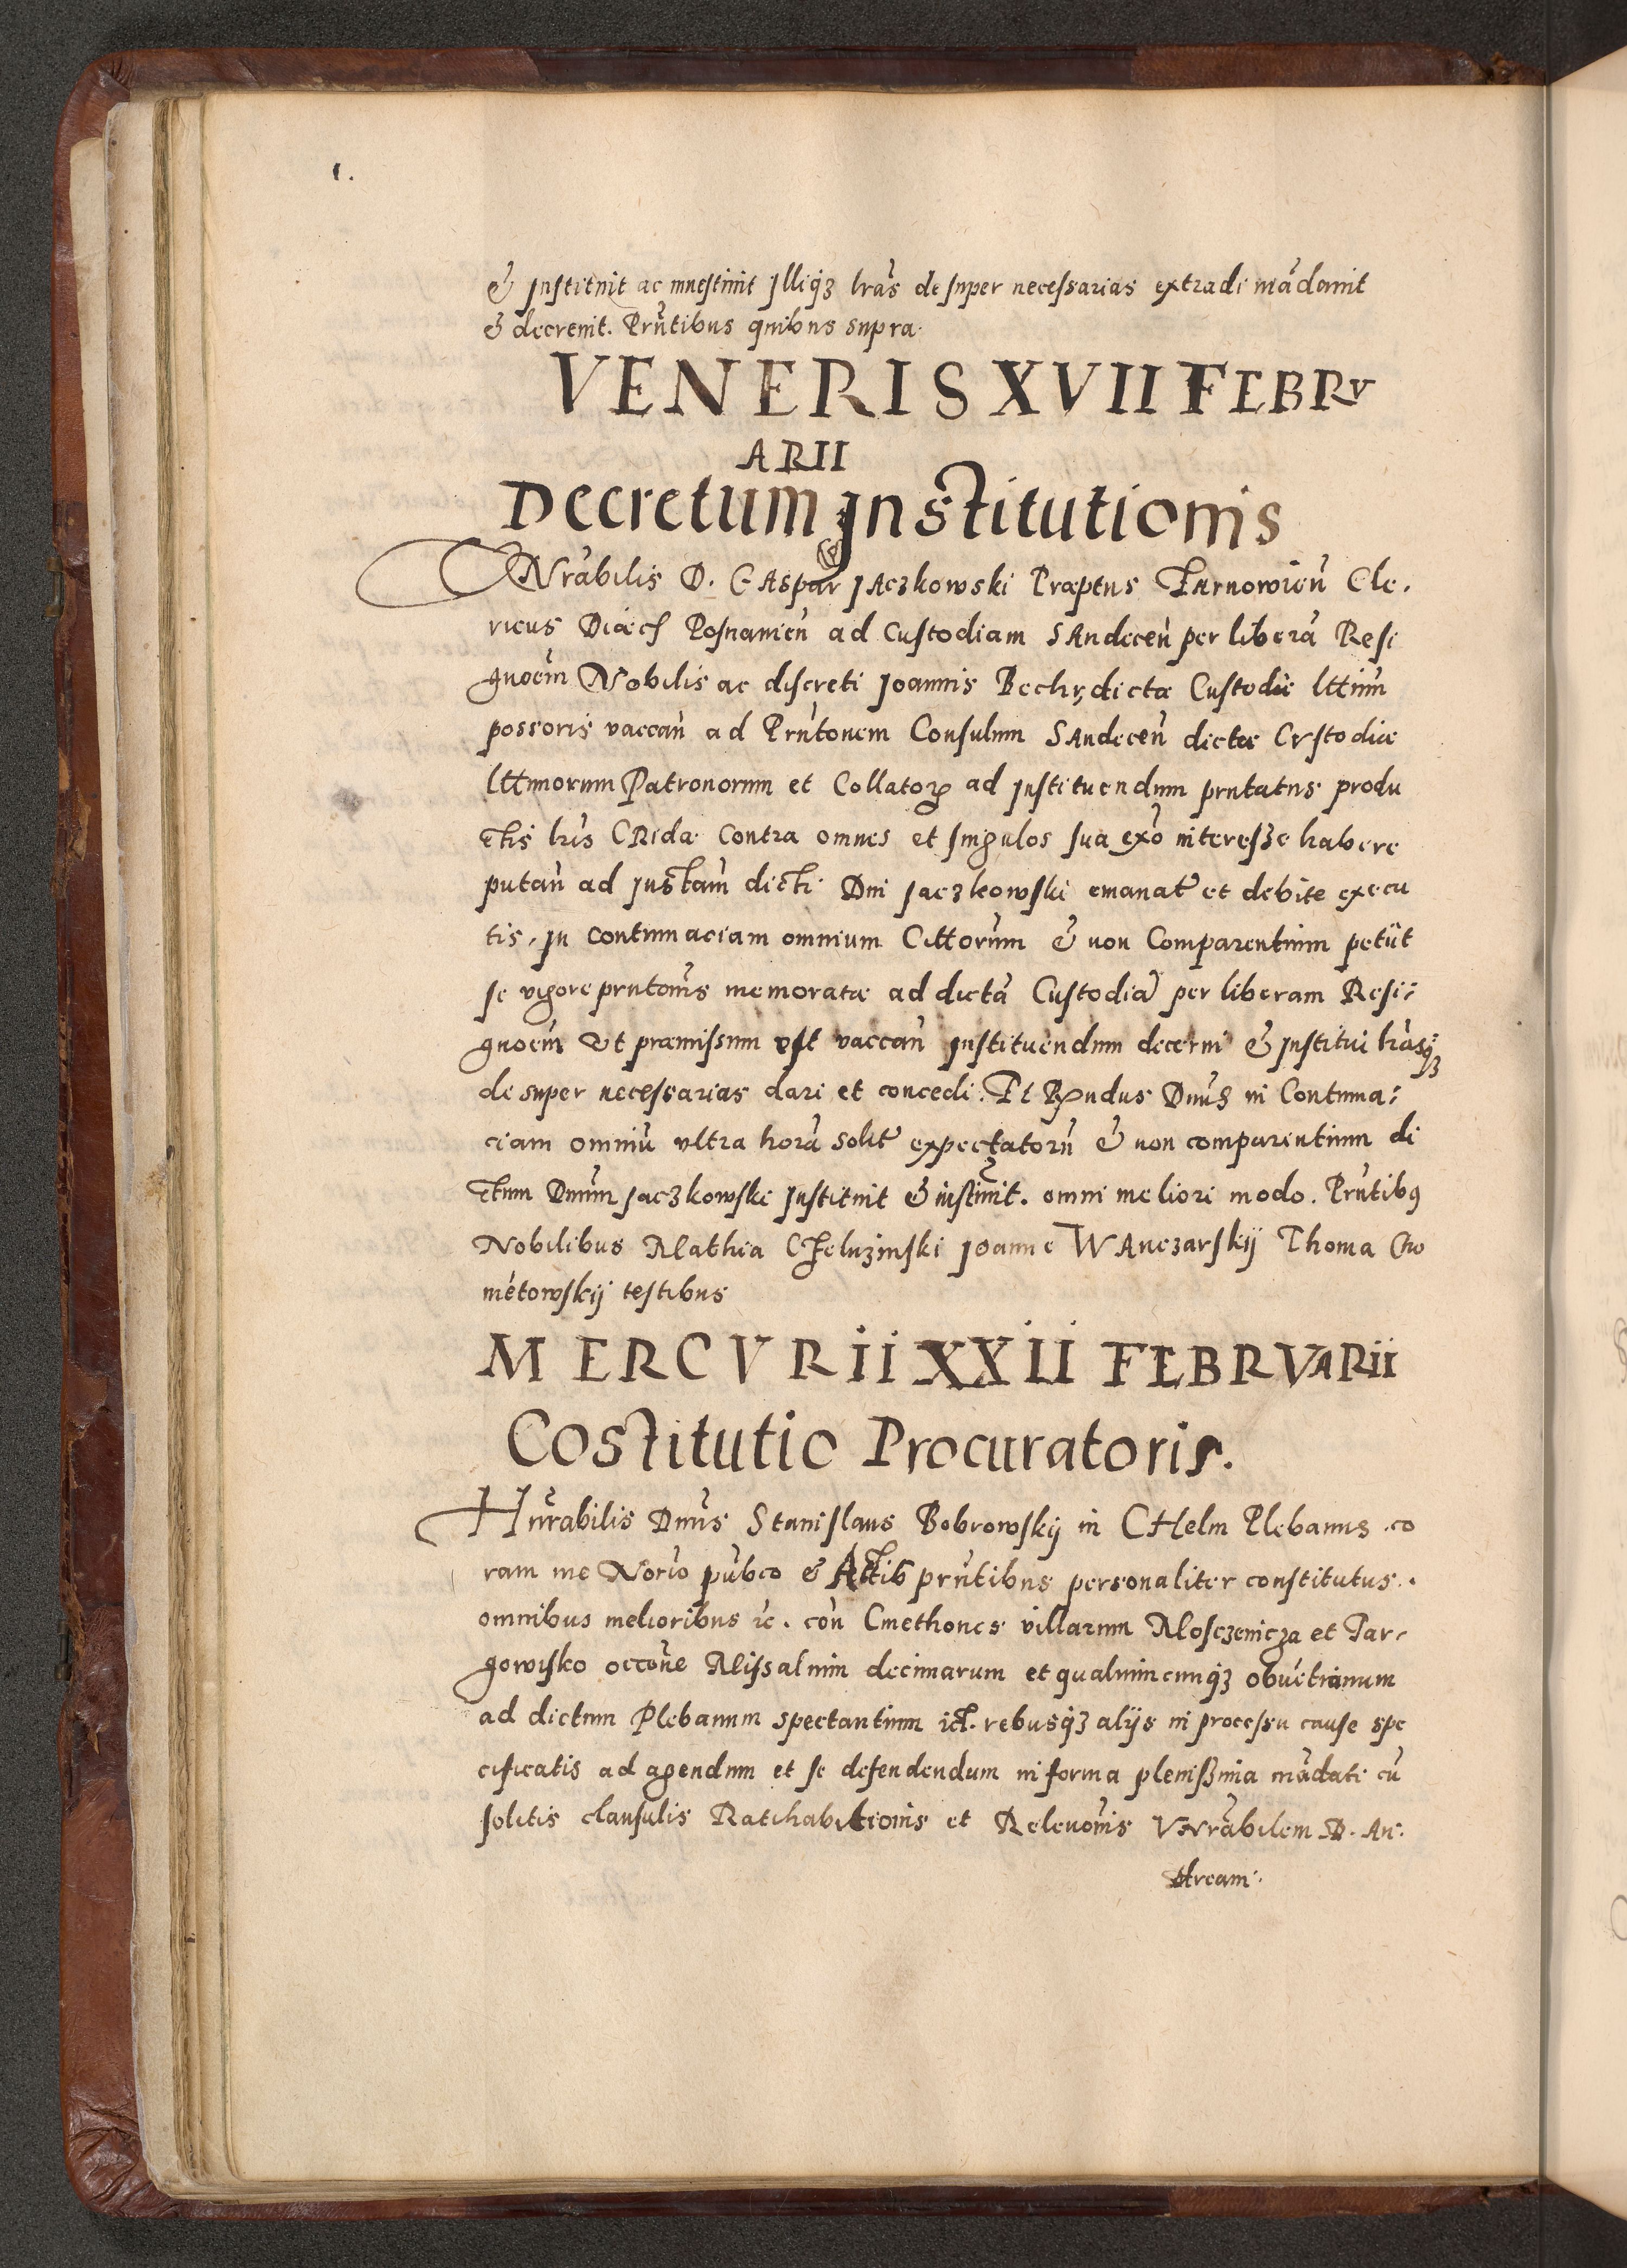 1.
& Instituit ac inuestiuit illiq3 lrãs desuper necessarias extradi mãdauit
& decreuit. Prñtibus quibus supra.
VENERIS XVII FEBRV
ARII
Decretum Institutionis
VNrãbilis D. GAspar JAczkowski Præptus TArnowieñ Cle.
ricus Diœcs Posnanieñ ad Custodiam SAndeceñ per liberã Resi
gnoem Nobilis ac discreti Joannis Bechr, dictæ Custodiæ lttimi
possoris vaccañ ad Prñtonem Consulum SAndeceñ dictæ CVstodiæ
lttimorum Patronorum et Collatorꝝ ad instituendum prntatus produ
ctis lris CRida contra omnes et singulos sua exõ interesse habere
putañ ad instam dicti Dni Jaczkowski emanat et debite execu
tis, in contumaciam omnium Cittorum & non Comparentium petiit
se vigore prntonis memoratæ ad dictã Custodiã per liberam Resi-
gnoem vt præmissum est vaccañ instituendum decerni & institui lrãsq3
desuper necessarias dari et concedi. Et Rndus Dnus in Contuma-
ciam omniũ vltra horã solit expectatorũ & non comparentium di
ctum Dnum Jaczkowski instituit & inuestiuit. omni meliori modo. Prñtibꝰ
Nobilibus Mathia CHeluzinski Joanne WAnczarskij Thoma Cho
metowskij testibus
MERCVRII XXII FEBRVARII
Costitutio Procuratoris.
Hnrãbilis Dnus Stanislaus Bobrowskij in CHelm Plebanus co
ram me Norio pubco & Acttib prñtibus personaliter constitutus.
omnibus melioribus ic. coñ Cmethones villarum Mosczenicza et Tar-
gowisko occõne Missalium decimarum et qualiumcunq3 obuentionum
ad dictum Plebanum spectantium ict. rebusq3 alijs in processu cause spe
cificatis ad agendum et se defendendum in forma plenissima mãdati cũ
solitis clausulis Ratihabitionis et Releuonis VNrãbilem D. An-
dream